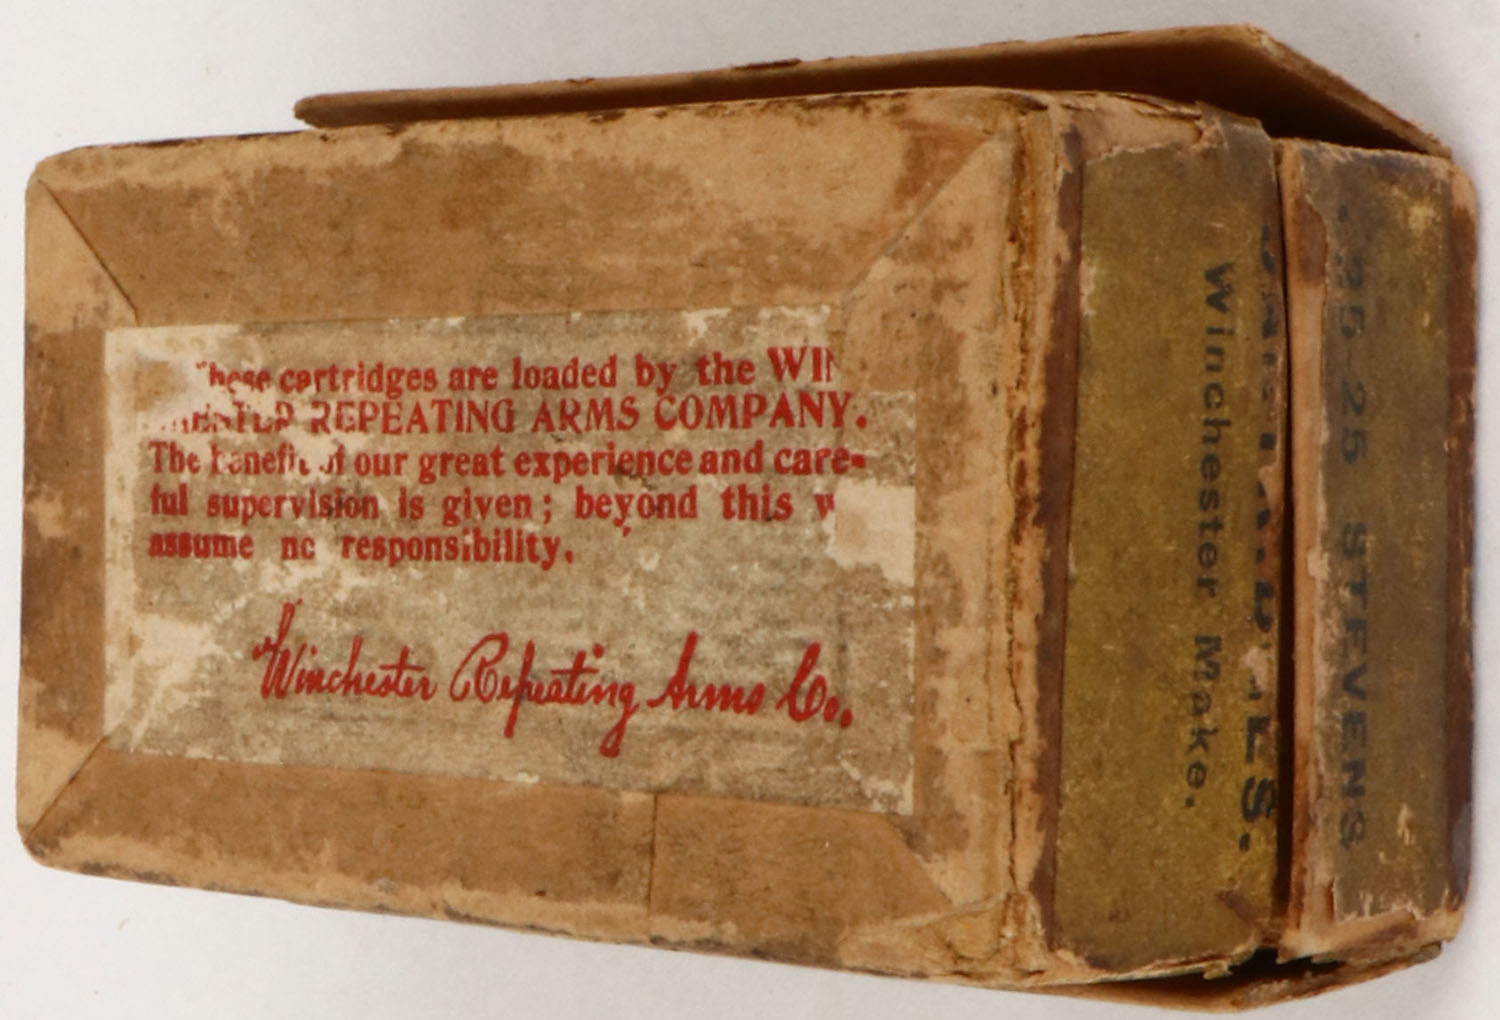 These cartridges are loaded by the WIN
CHESTER REPEATING ARMS COMPANY.
The benefit of our great experience and care-
ful supervision is given; beyond this
assume no responsibility.
Winchester Repeating Arms Co.
.25-25 STEVENS
CARTRIDGES.
Winchester Make.